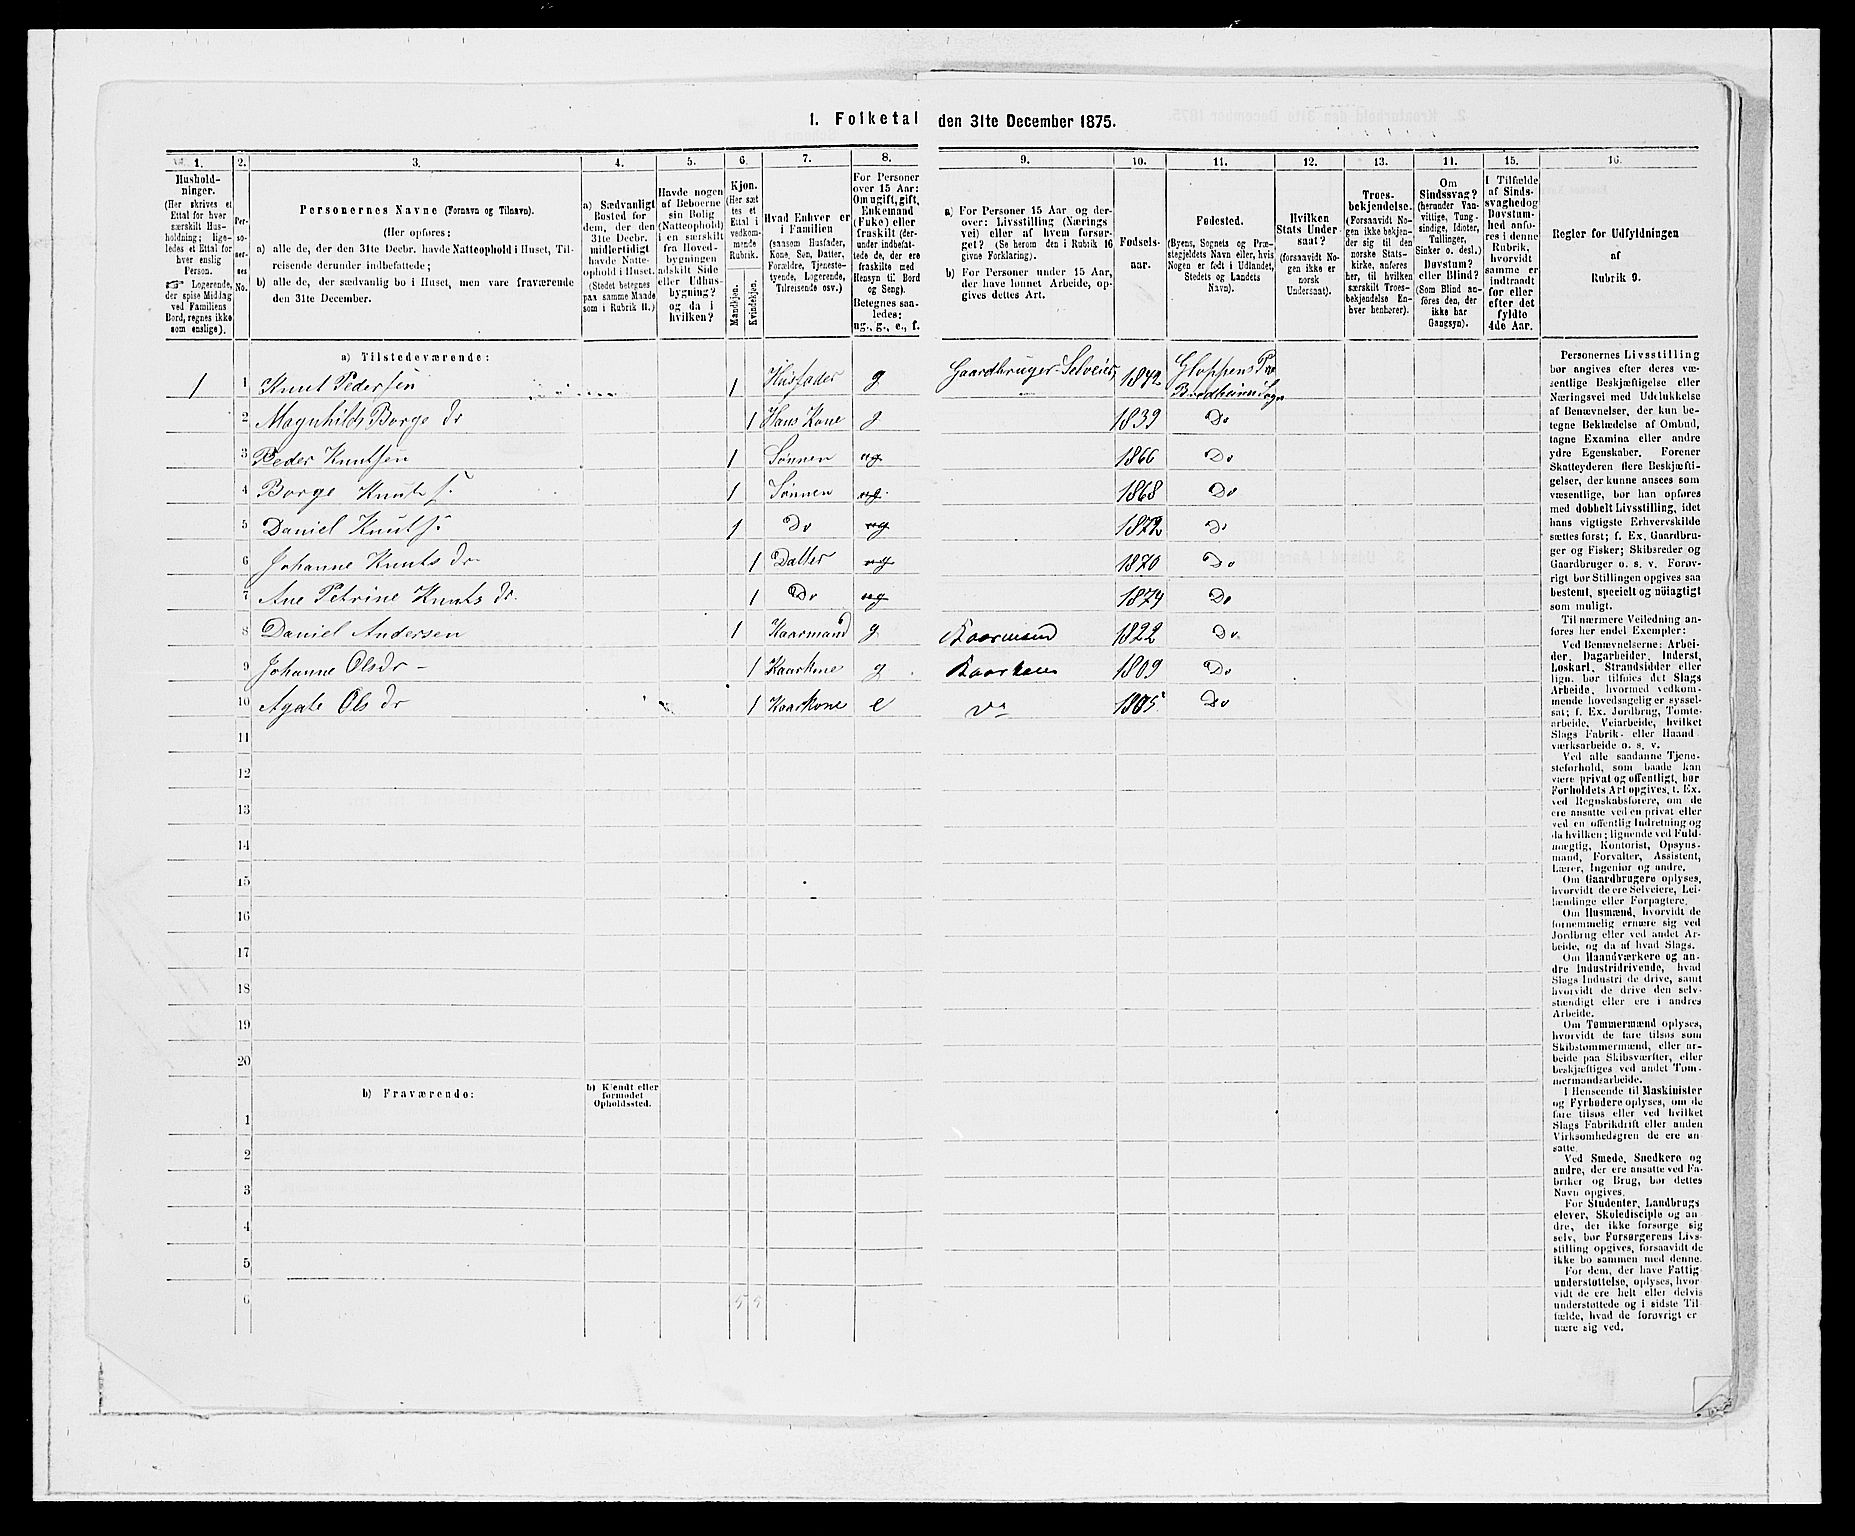 1. Folketal den 31te December 1875.
1. 2. 3. 4. 5. 6. 7. 8. 9. 10. 11. 12. 13. 14. 15. 16.
Hushold-
ninger.
(Her skrives et
Ettal for hver
særskilt Hus-
holdning; lige-
ledes et Ettal for
hver enslig
Person.
Logerende,
der spise Middag
ved Familiens
Bord, regnes ikke
som enslige).
Per-
so-
ner-
nes
No.
Personernes Navne (Fornavn og Tilnavn).
(Her opføres:
a) alle de, der den 31te Decbr. havde Natteophold i Huset, Til-
reisende derunder indbefattede;
b) alle de, der sædvanlig bo i Huset, men vare fraværende
den 31te December.
a) Sædvanligt
Bosted for
dem, der den
31te Decbr.
midlertidigt
havde Natte-
ophold i Huset.
(Stedet betegnes
paa samme Maade
som i Rubrik 11.)
Havde nogen
af Beboerne
sin Bolig
(Natteophold)
i en særskilt
fra Hoved-
bygningen
adskilt Side
eller Udhus-
bygning?
og da i
hvilken?
Kjøn.
(Her sæt
tes et
Ettal i
vedkom-
mende
Rubrik.
Mandkjøn.
Kvindekjøn.
Hvad Enhver er
i Familien
(saasom Husfader,
Kone, Søn, Datter,
Forældre, Tjeneste-
tyende, Logerende,
Tilreisende osv.)
For Personer
over 15 Aar:
Om ugift, gift,
Enkemand
(Enke) eller
fraskilt (der-
under indbefat-
tede de, der ere
fraskilte med
Hensyn til Bord
og Seng).
Betegnes saa-
ledes:
ug., g., e., f.
a) For Personer 15 Aar og der-
over: Livsstilling (Nærings
vei) eller af hvem forsør-
get? (Se herom den i Rubrik 16
givne Forklaring).
b) For Personer under 15 Aar,
der have lønnet Arbeide, op-
gives dettes Art.
Fødsels-
aar.
Fødested.
(Byens, Sognets og Præ-
stegjeldets Navn eller, hvis
Nogen er født i Udlandet,
Stedets og Landets
Navn).
Hvilken
Stats Under
saat?
(forsaavidt No-
gen ikke er
norsk
Undersaat).
Troes-
bekjendelse.
(Forsaavidt No-
gen ikke bekjen-
der sig til den
norske Stats-
kirke, anføres
her, til hvilken
særskilt Troes-
bekjendelse En-
hver henhører).
Om
Sindssvag?
(herunder Van-
vittige, Tung-
sindige, Idioter,
Tullinger,
Sinker o. desl.)
Døvstum?
eller Blind?
(Som Blind an-
føres den, der
ikke har
Gangsyn).
I Tilfælde
af Sinds-
svaghed og
Døvstum-
hed anfø-
res i denne
Rubrik,
hvorvidt
samme er
indtraadt
før eller
efter det
fyldte
4de Aar.
Regler for Udfyldningen
af
Rubrik 9.
a) Tilstedeværende:
1 1 Knut Pedersen 1 Husfader g Gaardbruger Selveier 1842 Gloppens Pr
Bredheims Sogn
2 Magnhilds Borge dr 1 Hans Kone g 1839 Do
3 Peder Knutsen 1 Sønnen ug 1866 Do
4 Borge Knuts s. 1 Sønnen ug. 1868 Do
5 Daniel Knuts s. 1 Do ug 1872 Do
6 Johanne Knuts dr 1 Datter ug 1870 Do
7 Ane Petrine Knuts dr. 1 Do ug 1874 Do
8 Daniel Andersen 1 Kaarmand g Kaarmand 1822 Do
9 Johanne Olsdr - 1 Kaarkone g Kaarkone 1809 Do
10 Agate Ols dr 1 Kaarkone e Do 1805 Do
11
12
13
14
15
16
17
18
19
20
b) Fraværende:
b) Kjendt eller
formodet
Opholdssted.
1
2
3
4
5
6 5 5
Personernes Livsstilling
bør angives efter deres væ-
sentlige Beskjæftigelse eller
Næringsvei med Udelukkelse
af Benævnelser, der kun be-
tegne Beklædelse af Ombud,
tagne Examina eller andre
ydre Egenskaber. Forener
Skatteyderen flere Beskjæfti-
gelser, der kunne ansees som
væsentlige, bør han opføres
med dobbelt Livsstilling, idet
hans vigtigste Erhvervskilde
sættes først; f. Ex. Gaardbru-
ger og Fisker; Skibsreder og
Gaardbruger o. s. v. Forøv-
rigt bør Stillingen opgives saa
bestemt, specielt og nøiagtigt
som muligt.
Til nærmere Veiledning an-
føres her endel Exempler:
Ved Benævnelserne: Arbei-
der, Dagarbeider, Inderst,
Loskarl, Strandsidder eller
lign. bør tilføies det Slags
Arbeide, hvormed vedkom-
mende hovedsagelig er syssel-
sat; f. Ex. Jordbrug, Tømte-
arbeide, Veiarbeide, hvilket
Slags Fabrik- eller Haand
værksarbeide o. s. v.
Ved alle saadanne Tjene-
steforhold, som baade kan
være privat og offentligt, bør
Forholdets Art opgives, t. Ex.
ved Regnskabsførere, om de
ere ansatte ved en privat eller
ved en offentlig Indretning og
da hvilken; lignende ved Fuld-
mægtig, Kontorist, Opsyns-
mand, Forvalter, Assistent,
Lærer, Ingeniør og andre.
Om Gaardbrugere oplyses,
hvorvidt de ere Selveiere, Lei-
lændinge eller Forpagtere.
Om Husmænd, hvorvidt de
fornemmelig ernære sig ved
Jordbrug eller ved andet Ar-
beide, og da af hvad Slags.
Om Haandværkere og an-
dre Industridrivende, hvad
Slags Industri de drive, samt
hvorvidt de drive den selv-
stændigt eller ere i andres
Arbeide.
Om Tømmermænd oplyses,
hvorvidt de fare tilsøs som
Skibstømmermænd, eller ar-
beide paa Skibsværfter, eller
beskjæftiges ved andet Tøm-
mermandsarbeide.
I Henseende til Maskinister
og Fyrbødere oplyses, om de
fare tilsøs eller ved hvilket
Slags Fabrikdrift eller anden
Virksomhedsgren de ere an-
satte.
Ved Smede, Snedkere og
andre, der ere ansatte ved Fa-
briker og Brug, bør dettes
Navn opgives.
For Studenter, Landbrugs
elever, Skoledisciple og an
dre, der ikke forsørge sig
selv, bør Forsørgerens Livs-
stilling opgives, forsaavidt de
ikke bo sammen med denne.
For dem, der have Fattig
understøttelse, oplyses, hvor-
vidt de ere helt eller delvis
understøttede og i sidste Til-
fælde, hvad de forøvrigt er
nære sig ved.